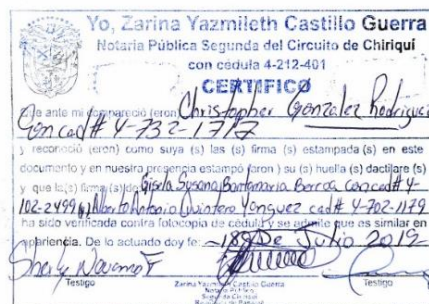 Yo, Zarina Yazmileth Castillo Guerra
Notaria Pública Segunda del Circuito de Chiriquí
con cédula 4-212-401
CERTIFICO
Que ante mi compareció (eron) Christopher Gonzalez Rodriguez
Con ced# 4-732-1717
y reconoció (eron) como suya (s) las (s) firma (s) estampada (s) en este
documento y en nuestra presencia estampó (aron) su (s) huella (s) dactilare (s)
y que la(s) firma (s) de Gisela Susana Santamaria Berroa Con ced# 4-
102-2499 Alberto Antonio Quintero Yonguez ced# 4-702-1179
ha sido verificada contra fotocopia de cédula y se admite que es similar en
apariencia. De lo actuado doy fe. 18 De Julio 2019
Testigo Testigo
Zarina Yazmileth Castillo Guerra